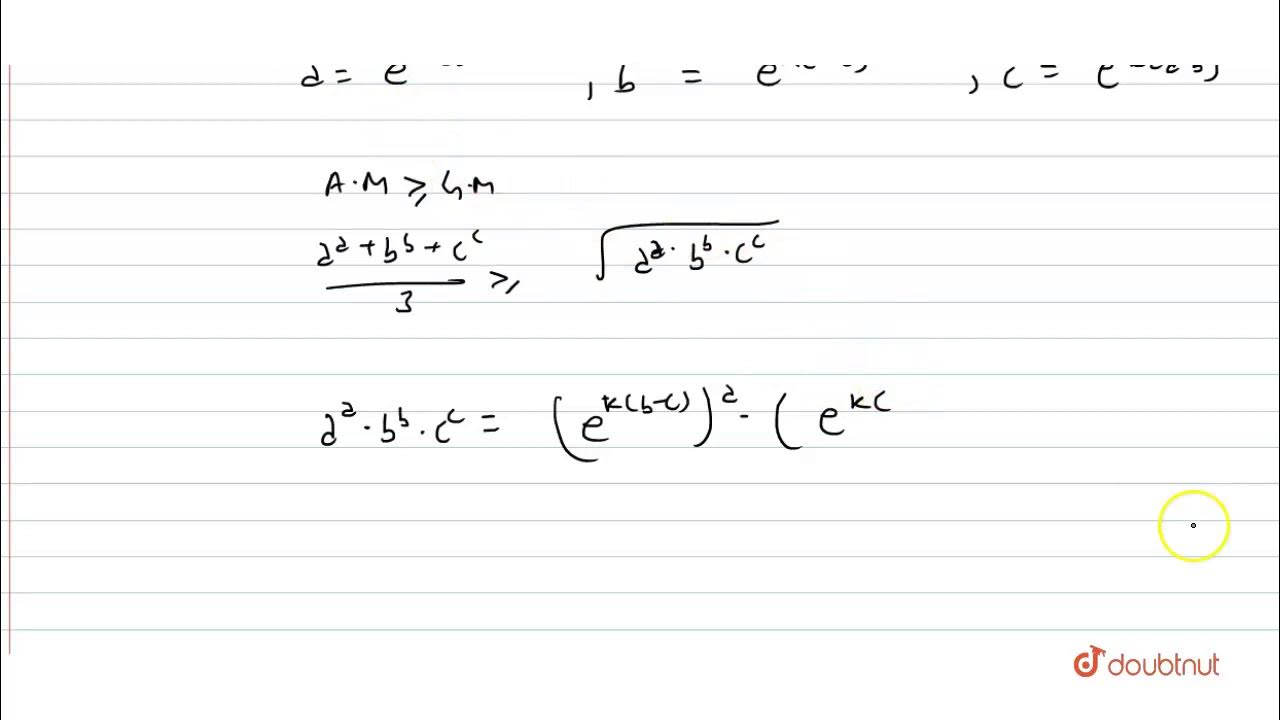 a = e , b = e , c = e
A.M ≥ G.M
a^a + b^b + c^c / 3 ≥ √(a^a · b^b · c^c)
a^a · b^b · c^c = (e^{k(b-c)})^a · (e^{k(
doubtnut